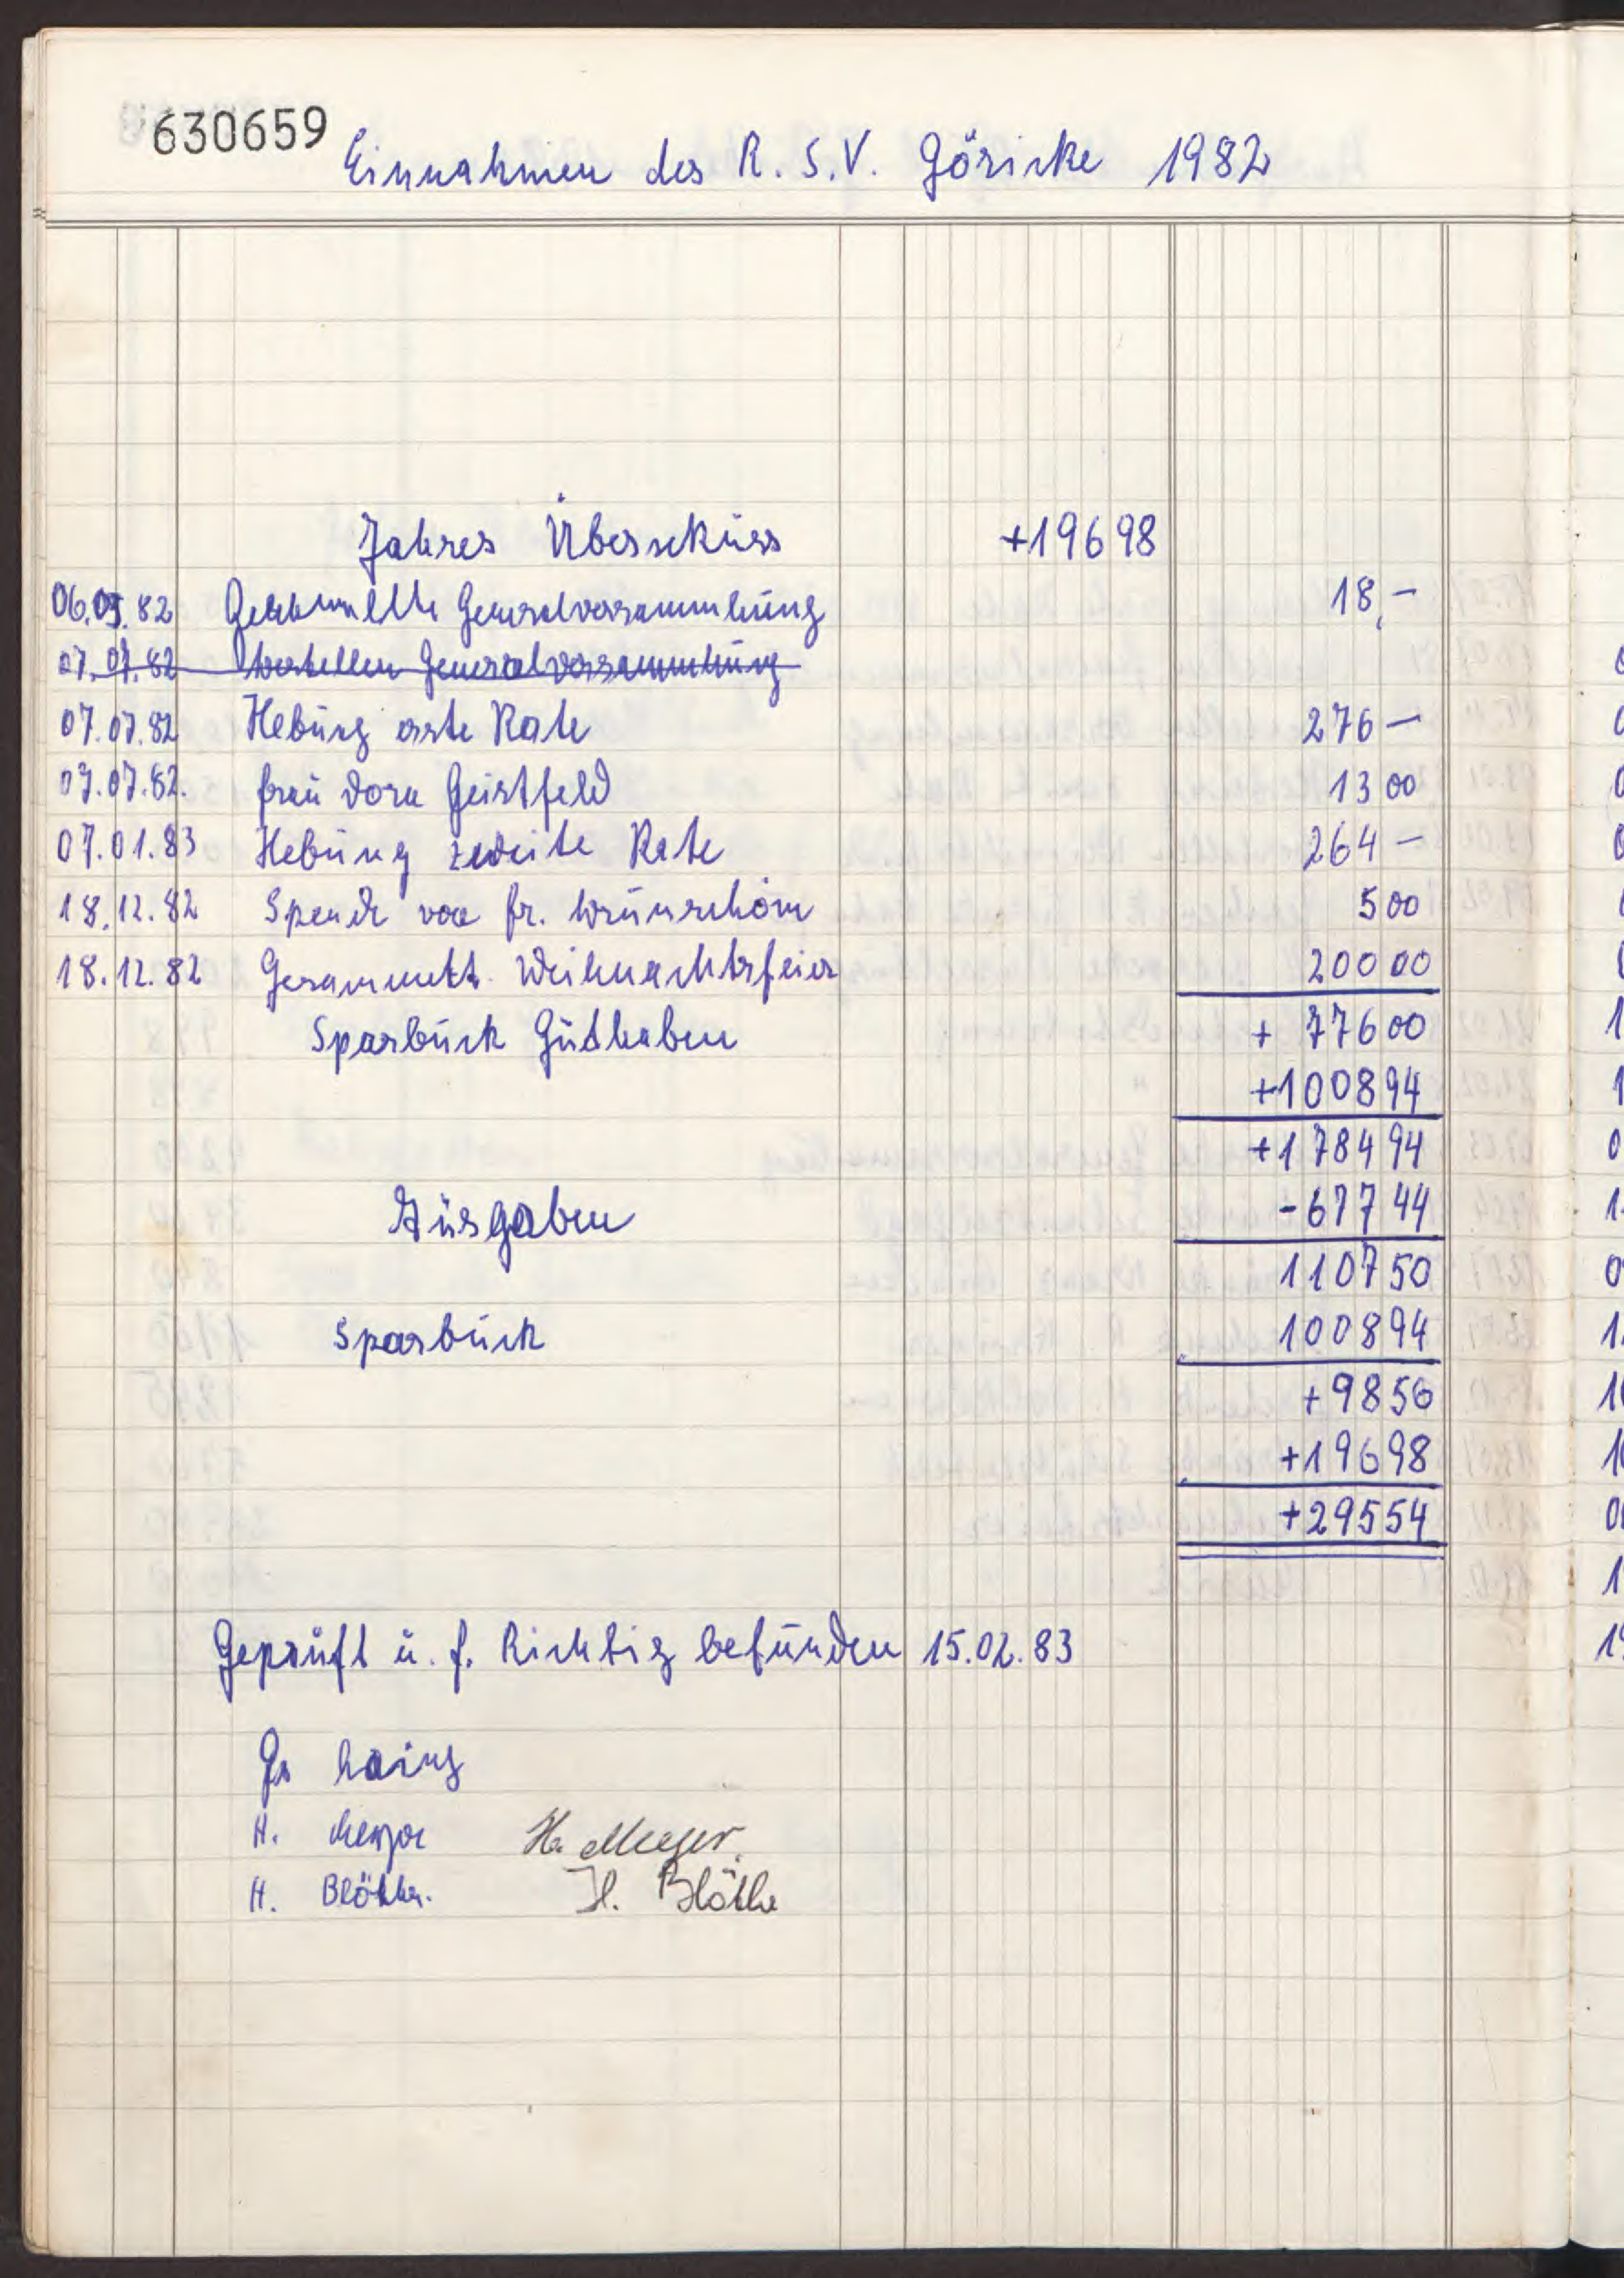 630659
Einnahmen des R. S. V. Göricke 1982
Jahres Überschuss +196 98
06.03.82 Generalversammlung 18,-
07.07.82 Generalversammlung
07.07.82 Hebung erste Rate 276 —
07.07.82. frau Dora Geistfeld 13 00
07.01.83 Hebung zweite Rate 264 —
18.12.82 Spende von fr. Wrünschöm 5 00
18.12.82 Gesammelt. Weihnachtsfeier 200 00
Sparbuch Guthaben + 776 00
+1008 94
+1784 94
Ausgaben -677 44
1107 50
Sparbuch 1008 94
+98 56
+196 98
+295 54
Geprüft u. f. Richtig befunden 15.02.83
H. Meyer H. Meyer.
H. Blöthe. H. Blöthe